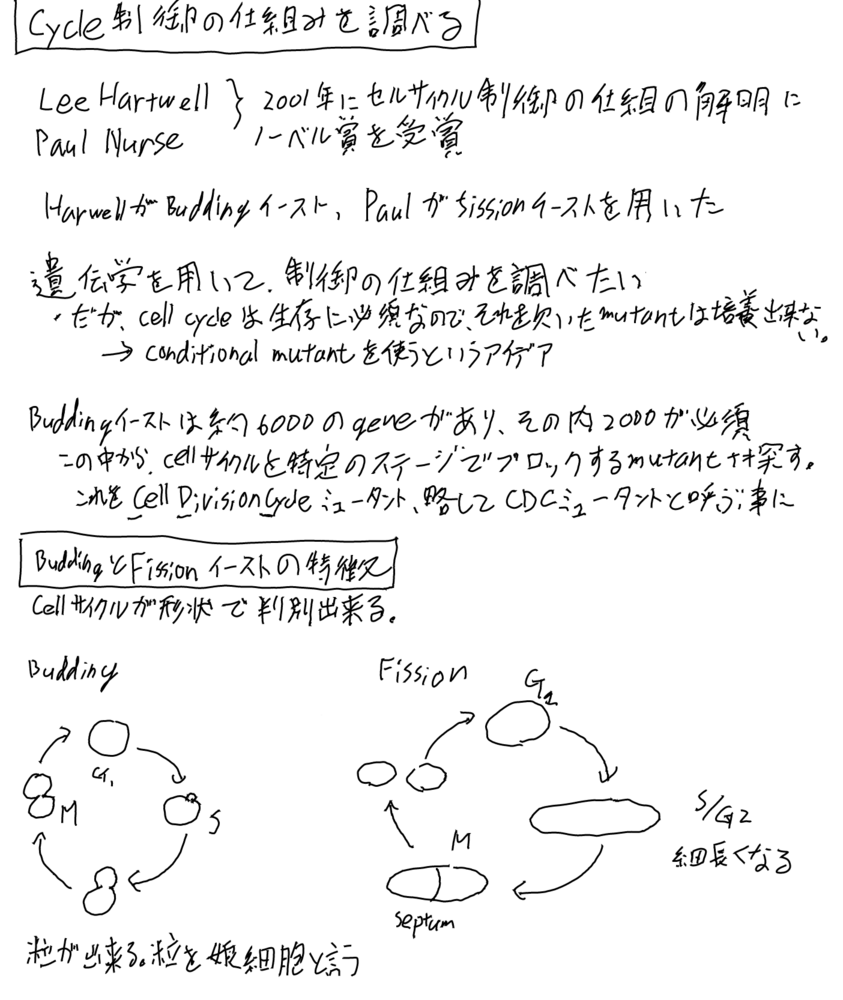 Cycle制御の仕組みを調べる
Lee Hartwell
Paul Nurse
2001年にセルサイクル制御の仕組の解明に
ノーベル賞を受賞
HarwellがBuddingイースト、Paulがfissionイーストを用いた
遺伝学を用いて、制御の仕組みを調べたい
・だが、cell cycleは生存に必須なので、それを欠いたmutantは培養出来ない。
→ conditional mutantを使うというアイデア
Buddingイーストは約6000のgeneがあり、その内2000が必須
この中から、cellサイクルを特定のステージでブロックするmutantを探す。
これをCell Division Cycleミュータント、略してCDCミュータントと呼ぶ事に
BuddingとFissionイーストの特徴
Cellサイクルが形状で判別出来る。
Budding
Fission
G1
S
M
G1
S/G2
細長くなる
M
septum
粒が出来る。粒を娘細胞と言う